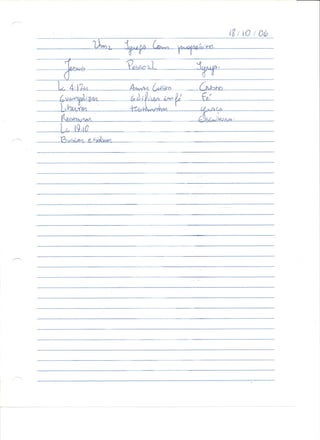 18/10/06
Uma Igreja com propósito
Jesus Pessoal Igreja
Lc 4.17ss Cristo
Evangelizar Edificar em fé Fé
Libertar Testemunhar Graça
Restaurar Escritura
Lc 19.10
Buscar e salvar